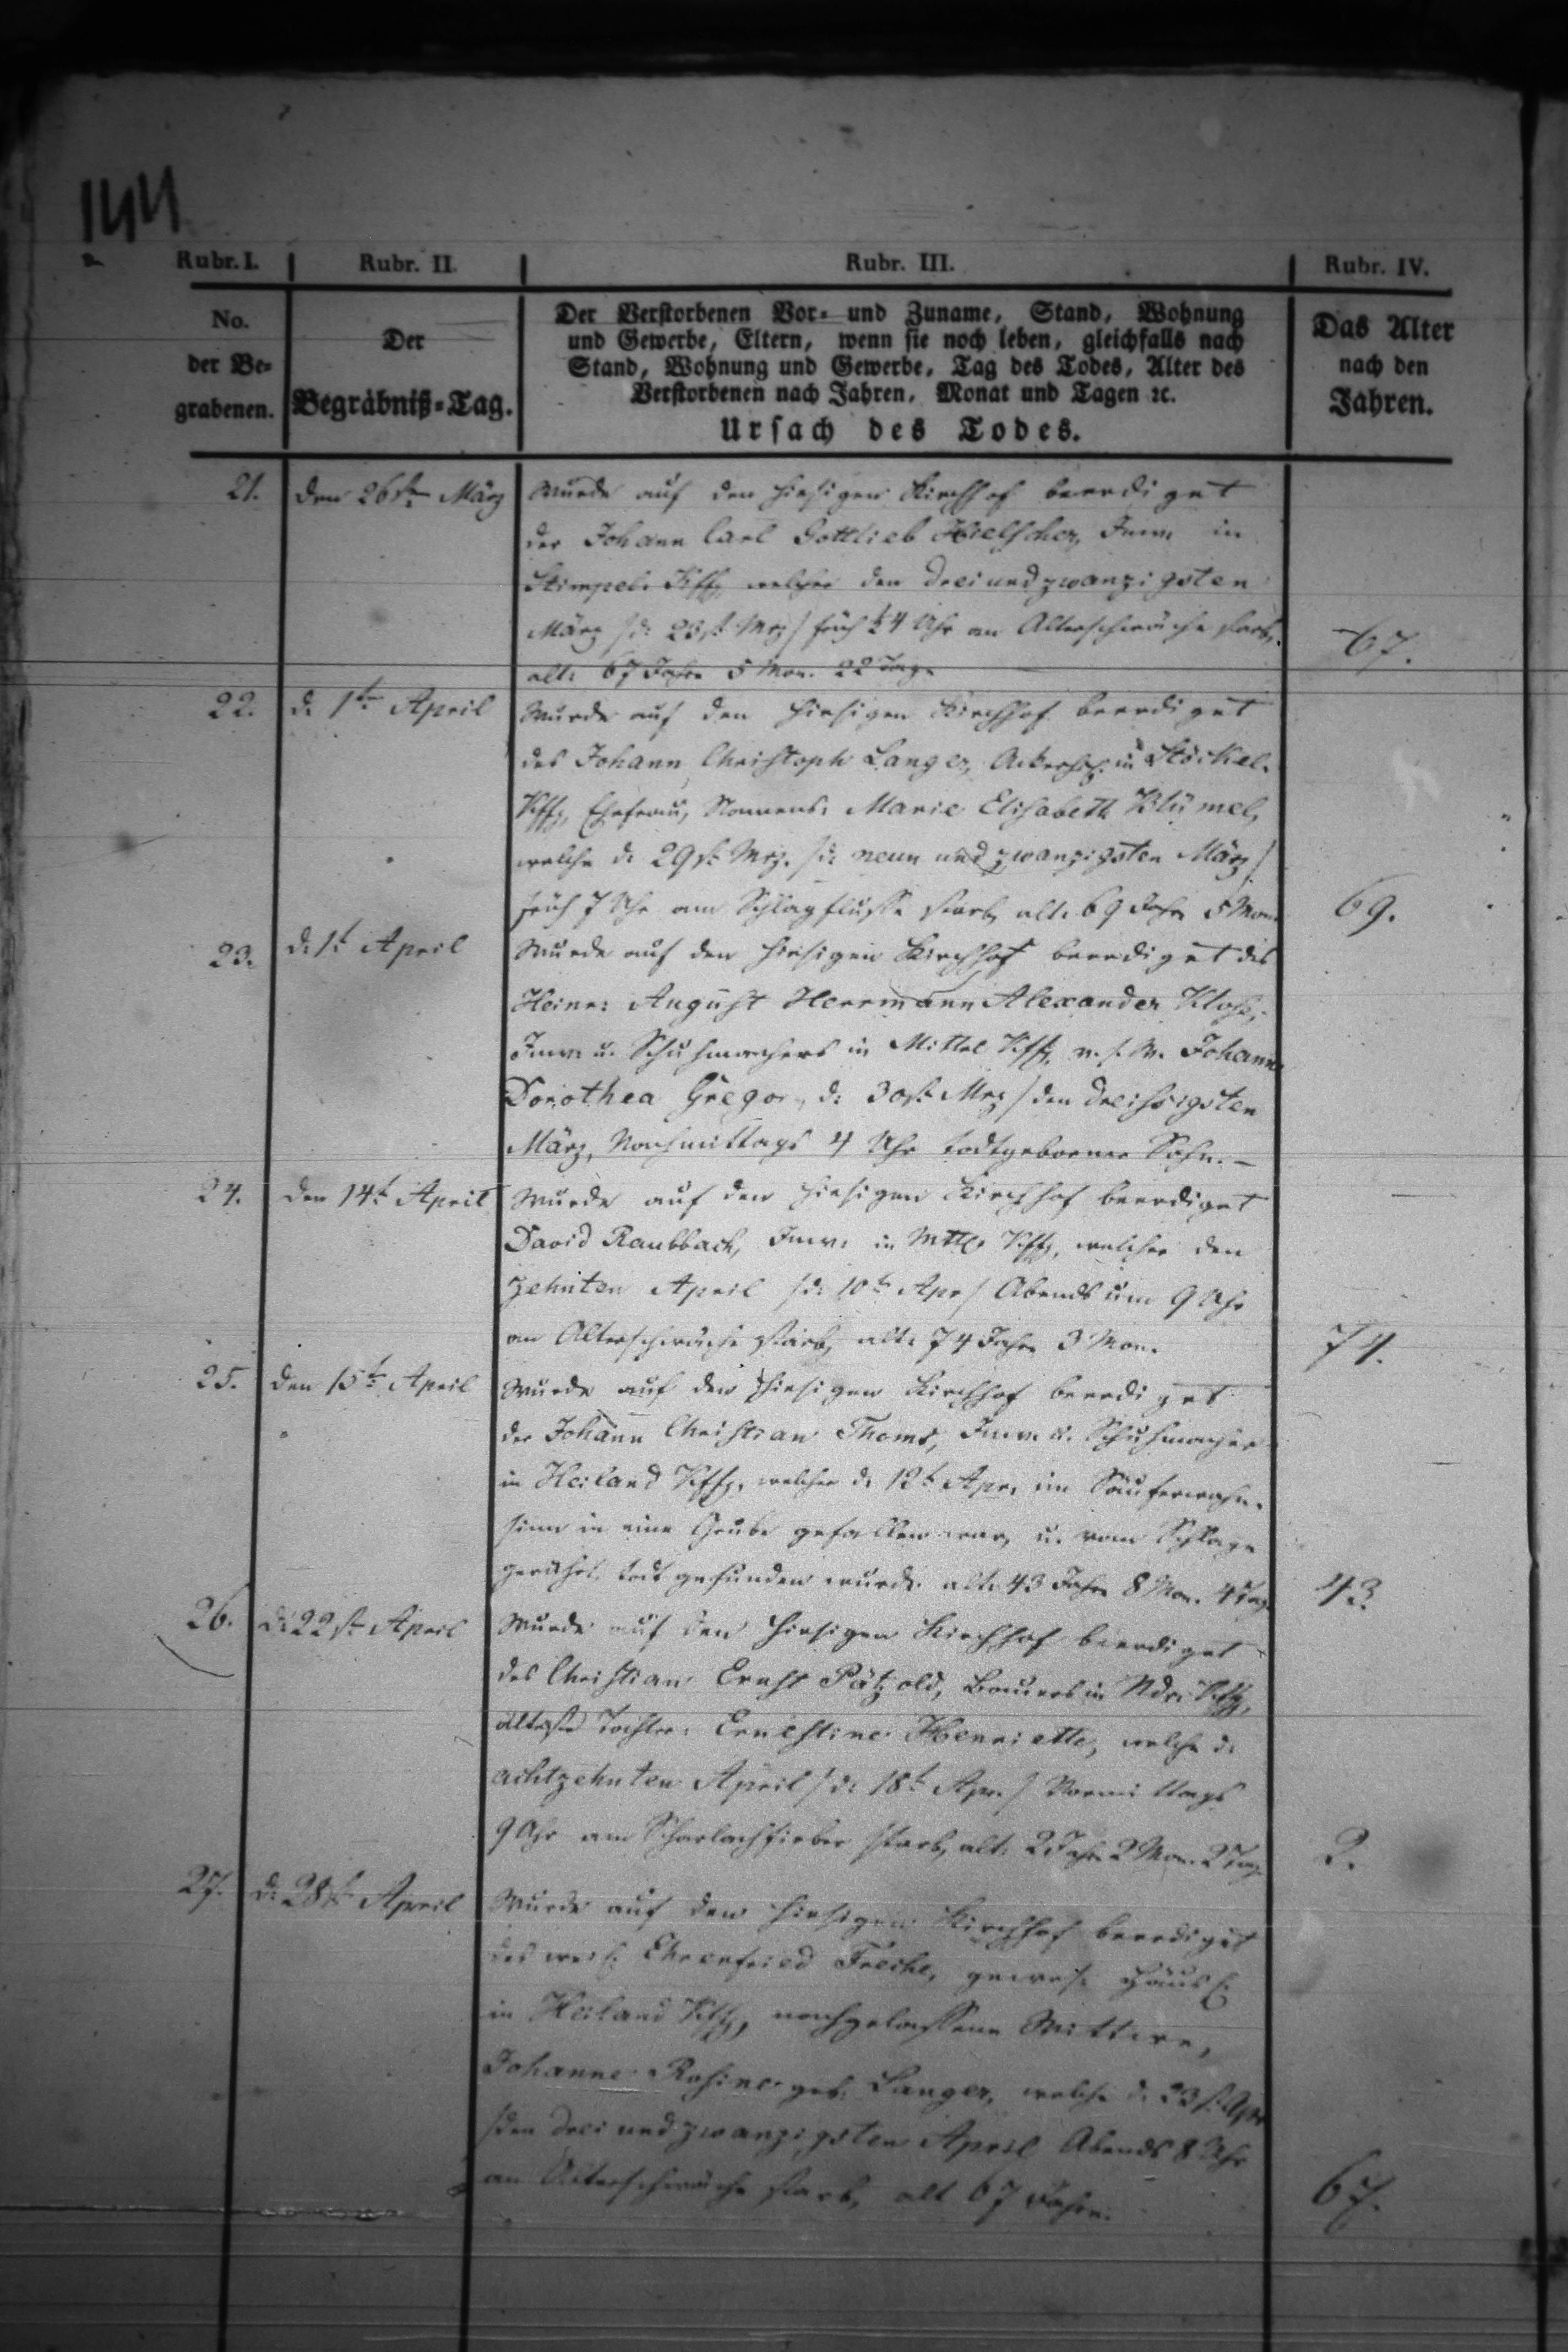 144
Rubr. I. Rubr. II. Rubr. III. Rubr. IV.
No.
der Be-
grabenen.
Der
Begräbniß-Tag.
Der Verstorbenen Vor- und Zuname, Stand, Wohnung
und Gewerbe, Eltern, wenn sie noch leben, gleichfalls nach
Stand, Wohnung und Gewerbe, Tag des Todes, Alter des
Verstorbenen nach Jahren, Monat und Tagen ꝛc.
Ursach des Todes.
Das Alter
nach den
Jahren.
21. den 26st. März Wurde auf den hiesigen Kirchhof beerdiget
der Johann Carl Gottlieb Hielscher, Inw. in
Stimpel Kffg, welcher den dreiundzwanzigsten
März /d: 23st. Mrz/ früh ½4 Uhr an Altersschwäche starb,
alt: 67 Jahre 5 Mon. 22 Tage 67.
22. d. 1te April Wurde auf den hiesigen Kirchhof beerdiget
des Johann Christoph Langer, in Stöckel.
Kffg, Ehefrau, Namens: Marie Elisabeth Blümel,
welche d: 29st. Mrz. /d: neun und zwanzigsten März/
früh 7 Uhr am Schlagflusse starb, alt: 69 Jahr 5 Mon. 69.
23. d: 1t April Wurde auf den hiesigen Kirchhof beerdiget des
Heinr: August Herrmann Alexander Klose,
Inw. u. Schuhmachers in Mittel Kffg, Johanne
Dorothea Gregor, d: 30st. Mrz /den dreissigsten
März, Nachmittags 4 Uhr todtgeborner Sohn. –
24. den 14t April Wurde auf den hiesigen Kirchhof beerdiget
David Raubbach, Inw: in Mttl Kffg, welcher den
zehnten April /d: 10t Apr/ Abends um 9 Uhr
an Altersschwäche starb, alt: 74 Jahre 3 Mon. 74.
25. den 15te April Wurde auf den hiesigen Kirchhof beerdiget
der Johann Christian Thoms, Inw. u. Schuhmacher
in Heiland Kffg, welcher d. 12t Apr. im Säuferwahn-
sinn in eine Grube gefallen war, u. vom Schlage
gerührt, todt gefunden wurde. alt: 43 Jahre 8 Mon. 4 Tag 43.
26. d: 22st April Wurde auf den hiesigen Kirchhof beerdiget
des Christian Ernst Pätzold, Bauers in Ndr: Kffg,
älteste Tochter: Ernestine Henriette, welche d:
achtzehnten April /d: 18t Apr./ Vormittags
9 Uhr am Scharlachfieber starb, alt: 2 Jahr 2 Mon. 2 Tag 2.
27. d: 28st April Wurde auf den hiesigen Kirchhof beerdiget
des weil: Ehrenfried Freche, gewes. Häusl:
in Heiland Kffg, nachgelassene Wittwe,
Johanne Rosine geb. Langer, welche d: 23st. Apr
/den drei und zwanzigsten April Abends 8 Uhr
an Altersschwäche starb, alt 67 Jahre. 67.